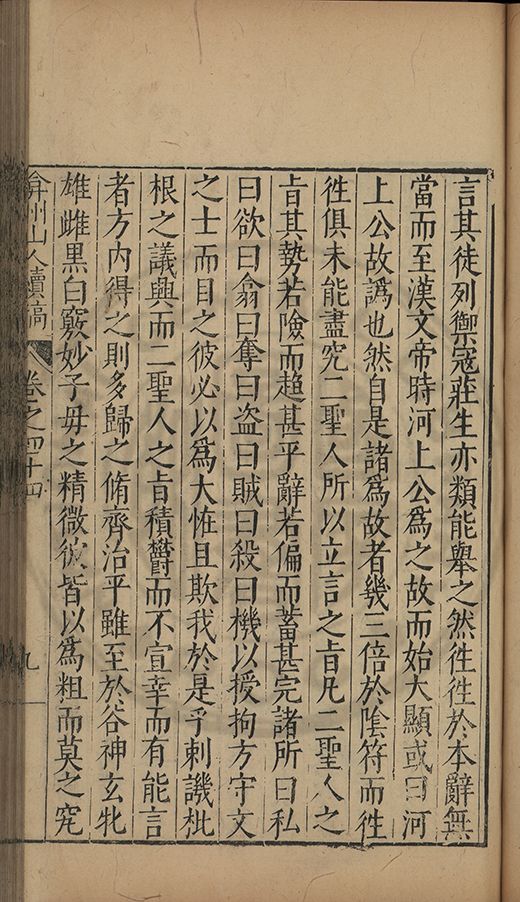 言其徒列禦冦莊生亦類能舉之然徃徃於本辭無
當而至漢文帝時河上公爲之故而始大顯或曰河
上公故譌也然自是諸爲故者幾三倍於陰符而徃
徃俱未能盡究二聖人所以立言之旨凡二聖人之
旨其勢若險而趋甚平辭若偏而蓄甚完諸所曰私
曰欲曰翕曰奪曰盗曰賊曰殺曰機以授拘方守文
之士而目之彼必以爲大恠且欺我於是乎刺譏枇
根之議興而二聖人之旨積鬱而不宣幸而有能言
者方内得之則多歸之脩齊治平雖至於谷神玄牝
雄雌黒白竅妙子母之精微彼皆以爲粗而莫之究
弇州山人續稿 卷之四十四 九